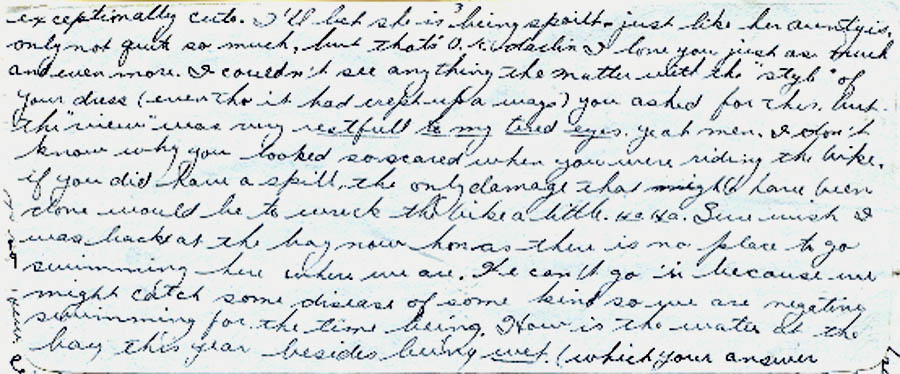 exceptionally cute. I'll bet she is being spoilt, just like her aunty is,
only not quite so much, but that's O.K. darlin I love you just as much
and even more. I couldn't see anything the matter with the "style" of
your dress (even tho it had crept up a ways) you asked for this, but
the "view" was very restfull to my tired eyes. yeah men. I don't
know why you looked so scared when you were riding the bike.
if you did have a spill, the only damage that might have been
done would be to wreck the bike a little. Ha Ha. Sure wish I
was back at the bay now hon as there is no place to go
swimming here where we are. We can't go in because we
might catch some disease of some kind so we are negating
swimming for the time being. How is the water at the
bay this year besides being wet. (which your answer